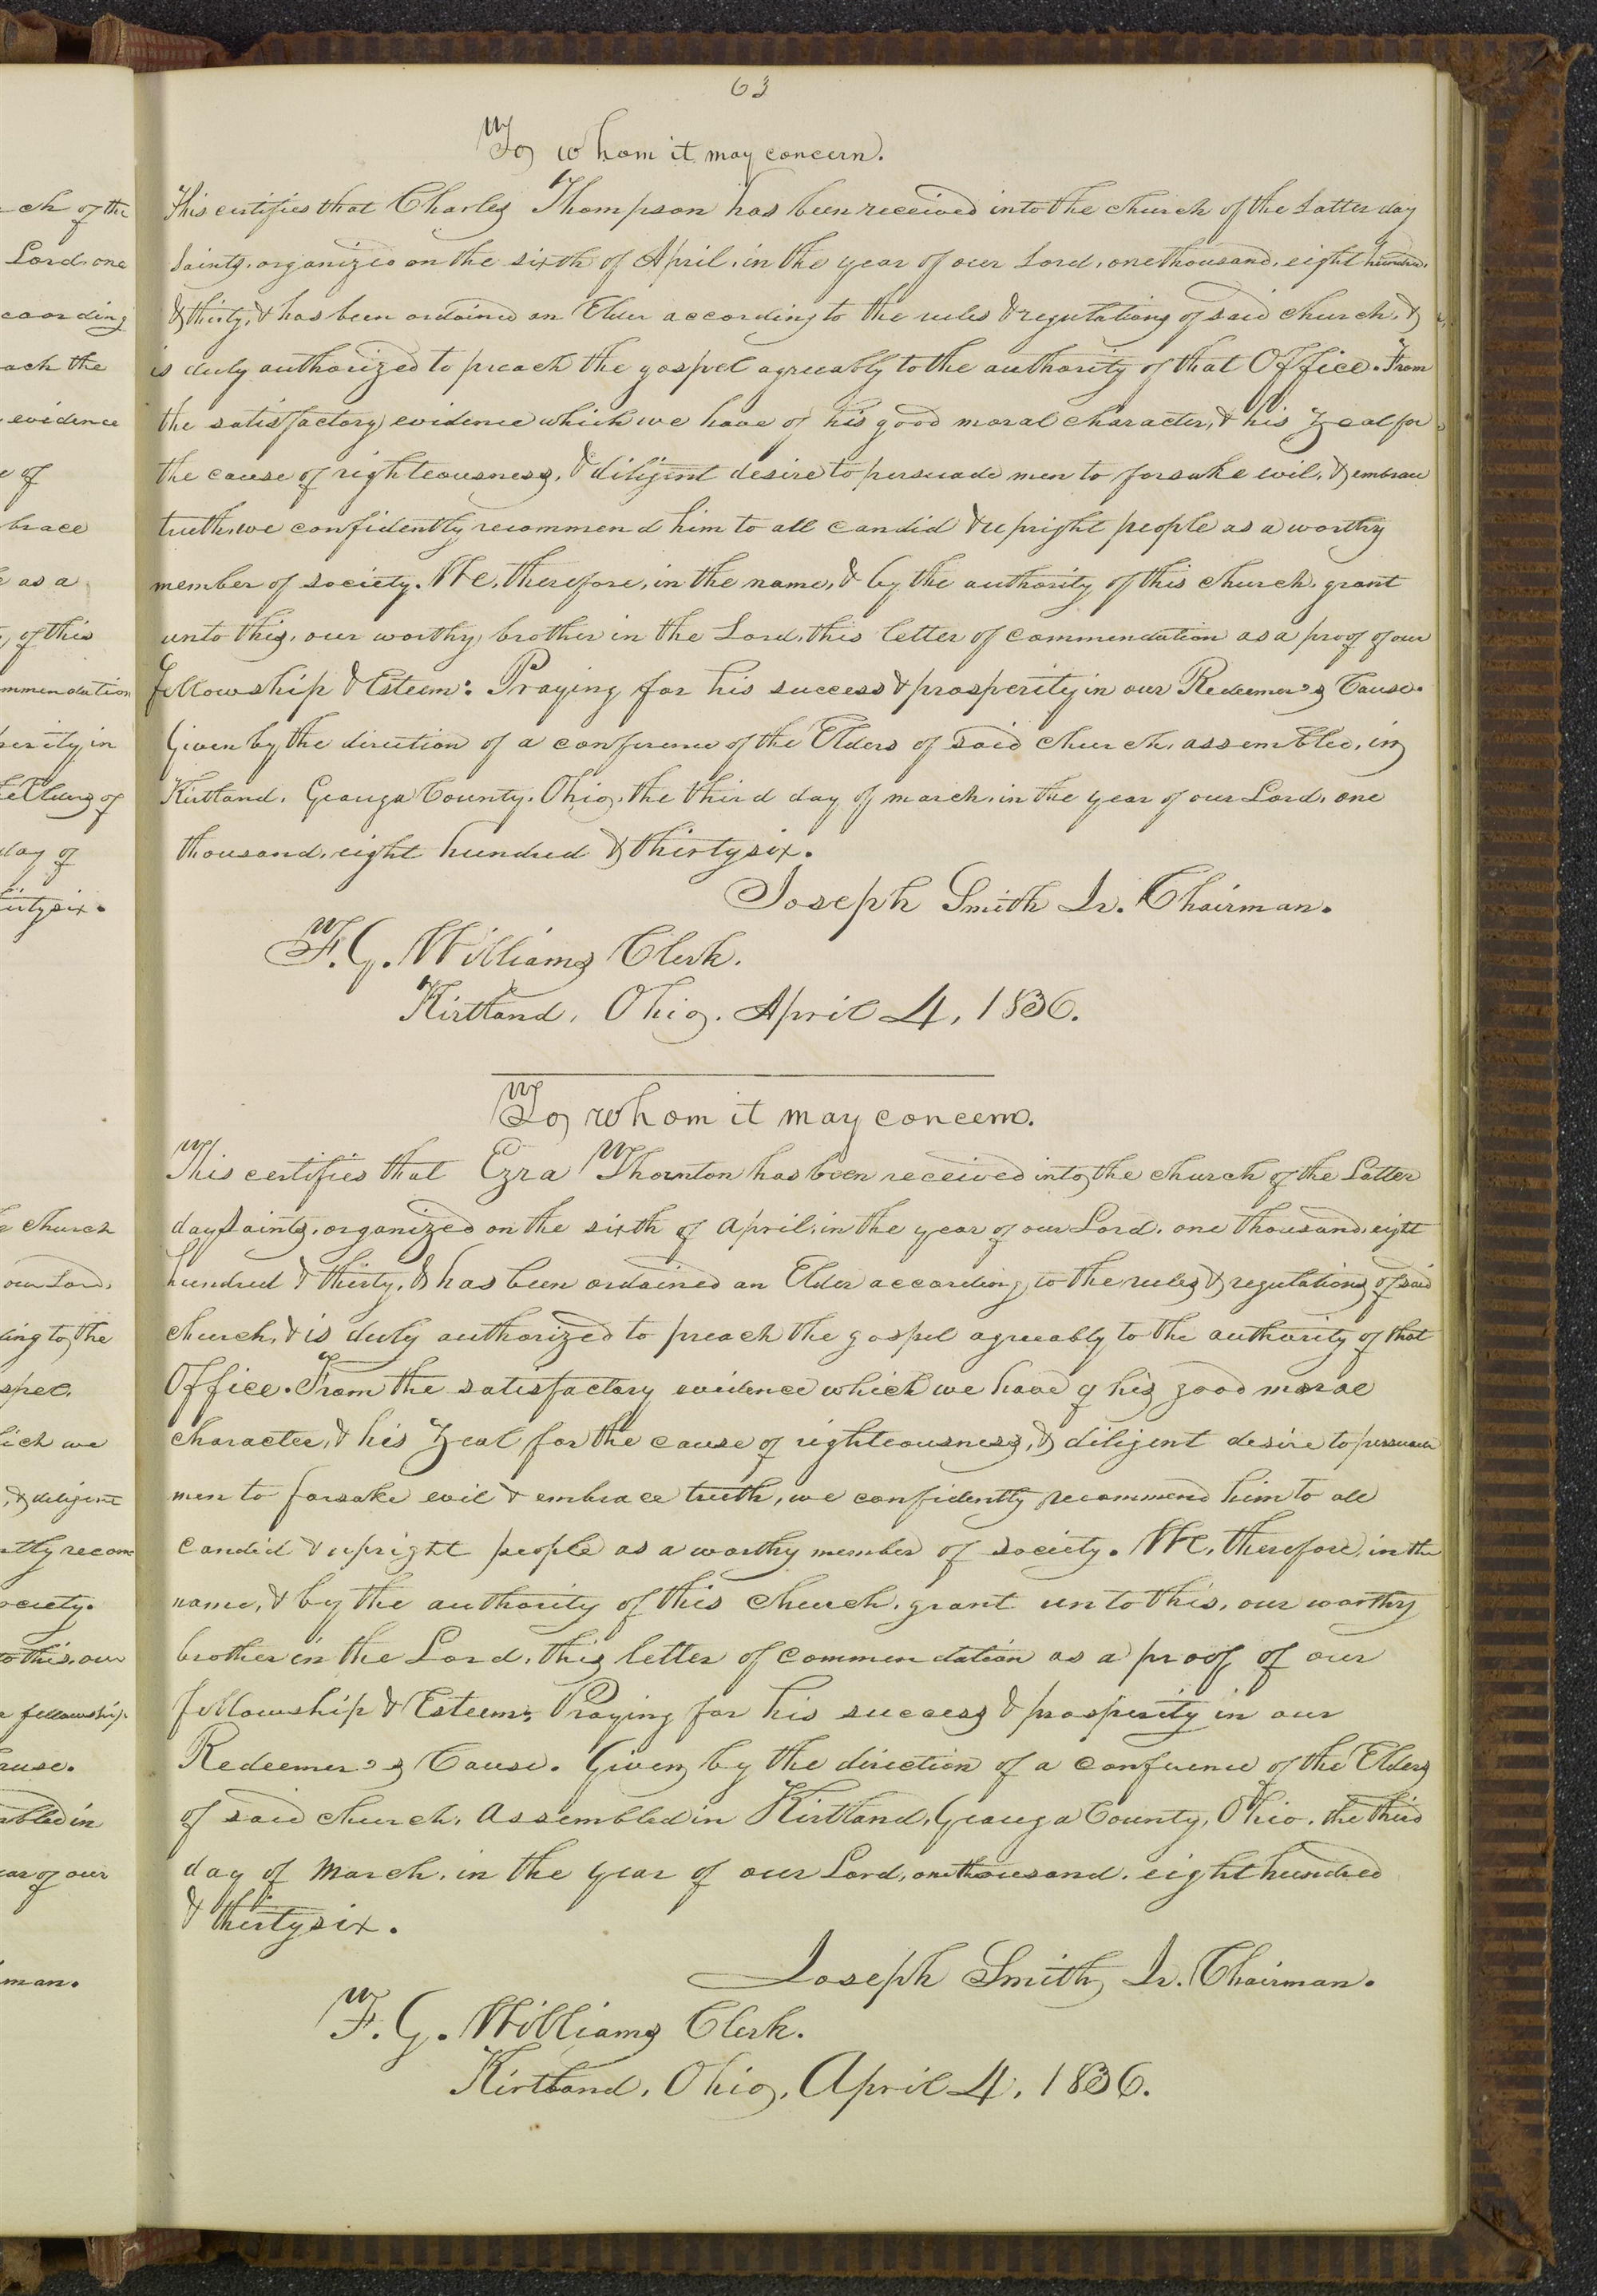 ch of the
Lord, one
ccording
ach the
evidence
e of
brace
e as a
, of this
mmendation
perity in
e Elders of
day of
irtysix.
e church
our Lord,
ding to the
spel.
hich we
, & diligent
ntly recom
ociety.
to this, our
r fellowship
ause.
mbled in
ear of our
man.
63
To whom it may concern.
This certifies that Charles Thompson has been received into the church of the Latter day
Saints, organized on the sixth of April, in the year of our Lord, one thousand, eight hundred,
& thirty, & has been ordained an Elder according to the rules & regulations of said church, &
is duly authorized to preach the gospel agreeably to the authority of that Office. From
the satisfactory evidence which we have of his good moral character, & his zeal for
the cause of righteousness, & diligent desire to persuade men to forsake evil, & embrace
truth, we confidently recommend him to all candid & upright people as a worthy
member of society. We, therefore, in the name, & by the authority of this church, grant
unto this, our worthy brother in the Lord, this letter of commendation as a proof of our
fellowship & Esteem: Praying for his success & prosperity in our Redeemer's Cause.
Given by the direction of a conference of the Elders of said church, assembled, in
Kirtland, Geauga County, Ohio, the third day of march, in the year of our Lord, one
thousand, eight hundred & thirtysix.
Joseph Smith Jr. Chairman.
F. G. Williams Clerk.
Kirtland, Ohio, April 4, 1836.
To whom it may concern.
This certifies that Ezra Thornton has been received into the church of the Latter
day Saints, organized on the sixth of April, in the year of our Lord, one thousand, eight
hundred & thirty, & has been ordained an Elder according to the rules & regulations of said
church, & is duly authorized to preach the gospel agreeably to the authority of that
Office. From the satisfactory evidence which we have of his good moral
character, & his zeal for the cause of righteousness, & diligent desire to persuade
men to forsake evil & embrace truth, we confidently recommend him to all
candid & upright people as a worthy member of society. We, therefore, in the
name, & by the authority of this church, grant unto this, our worthy
brother in the Lord, this letter of commendation as a proof of our
fellowship & Esteem; Praying for his success & prosperity in our
Redeemer's Cause. Given by the direction of a conference of the Elders
of said church, Assembled in Kirtland, Geauga County, Ohio, the third
day of March, in the year of our Lord, one thousand, eight hundred
& thirtysix.
Joseph Smith Jr. Chairman.
F. G. Williams Clerk.
Kirtland, Ohio, April 4, 1836.